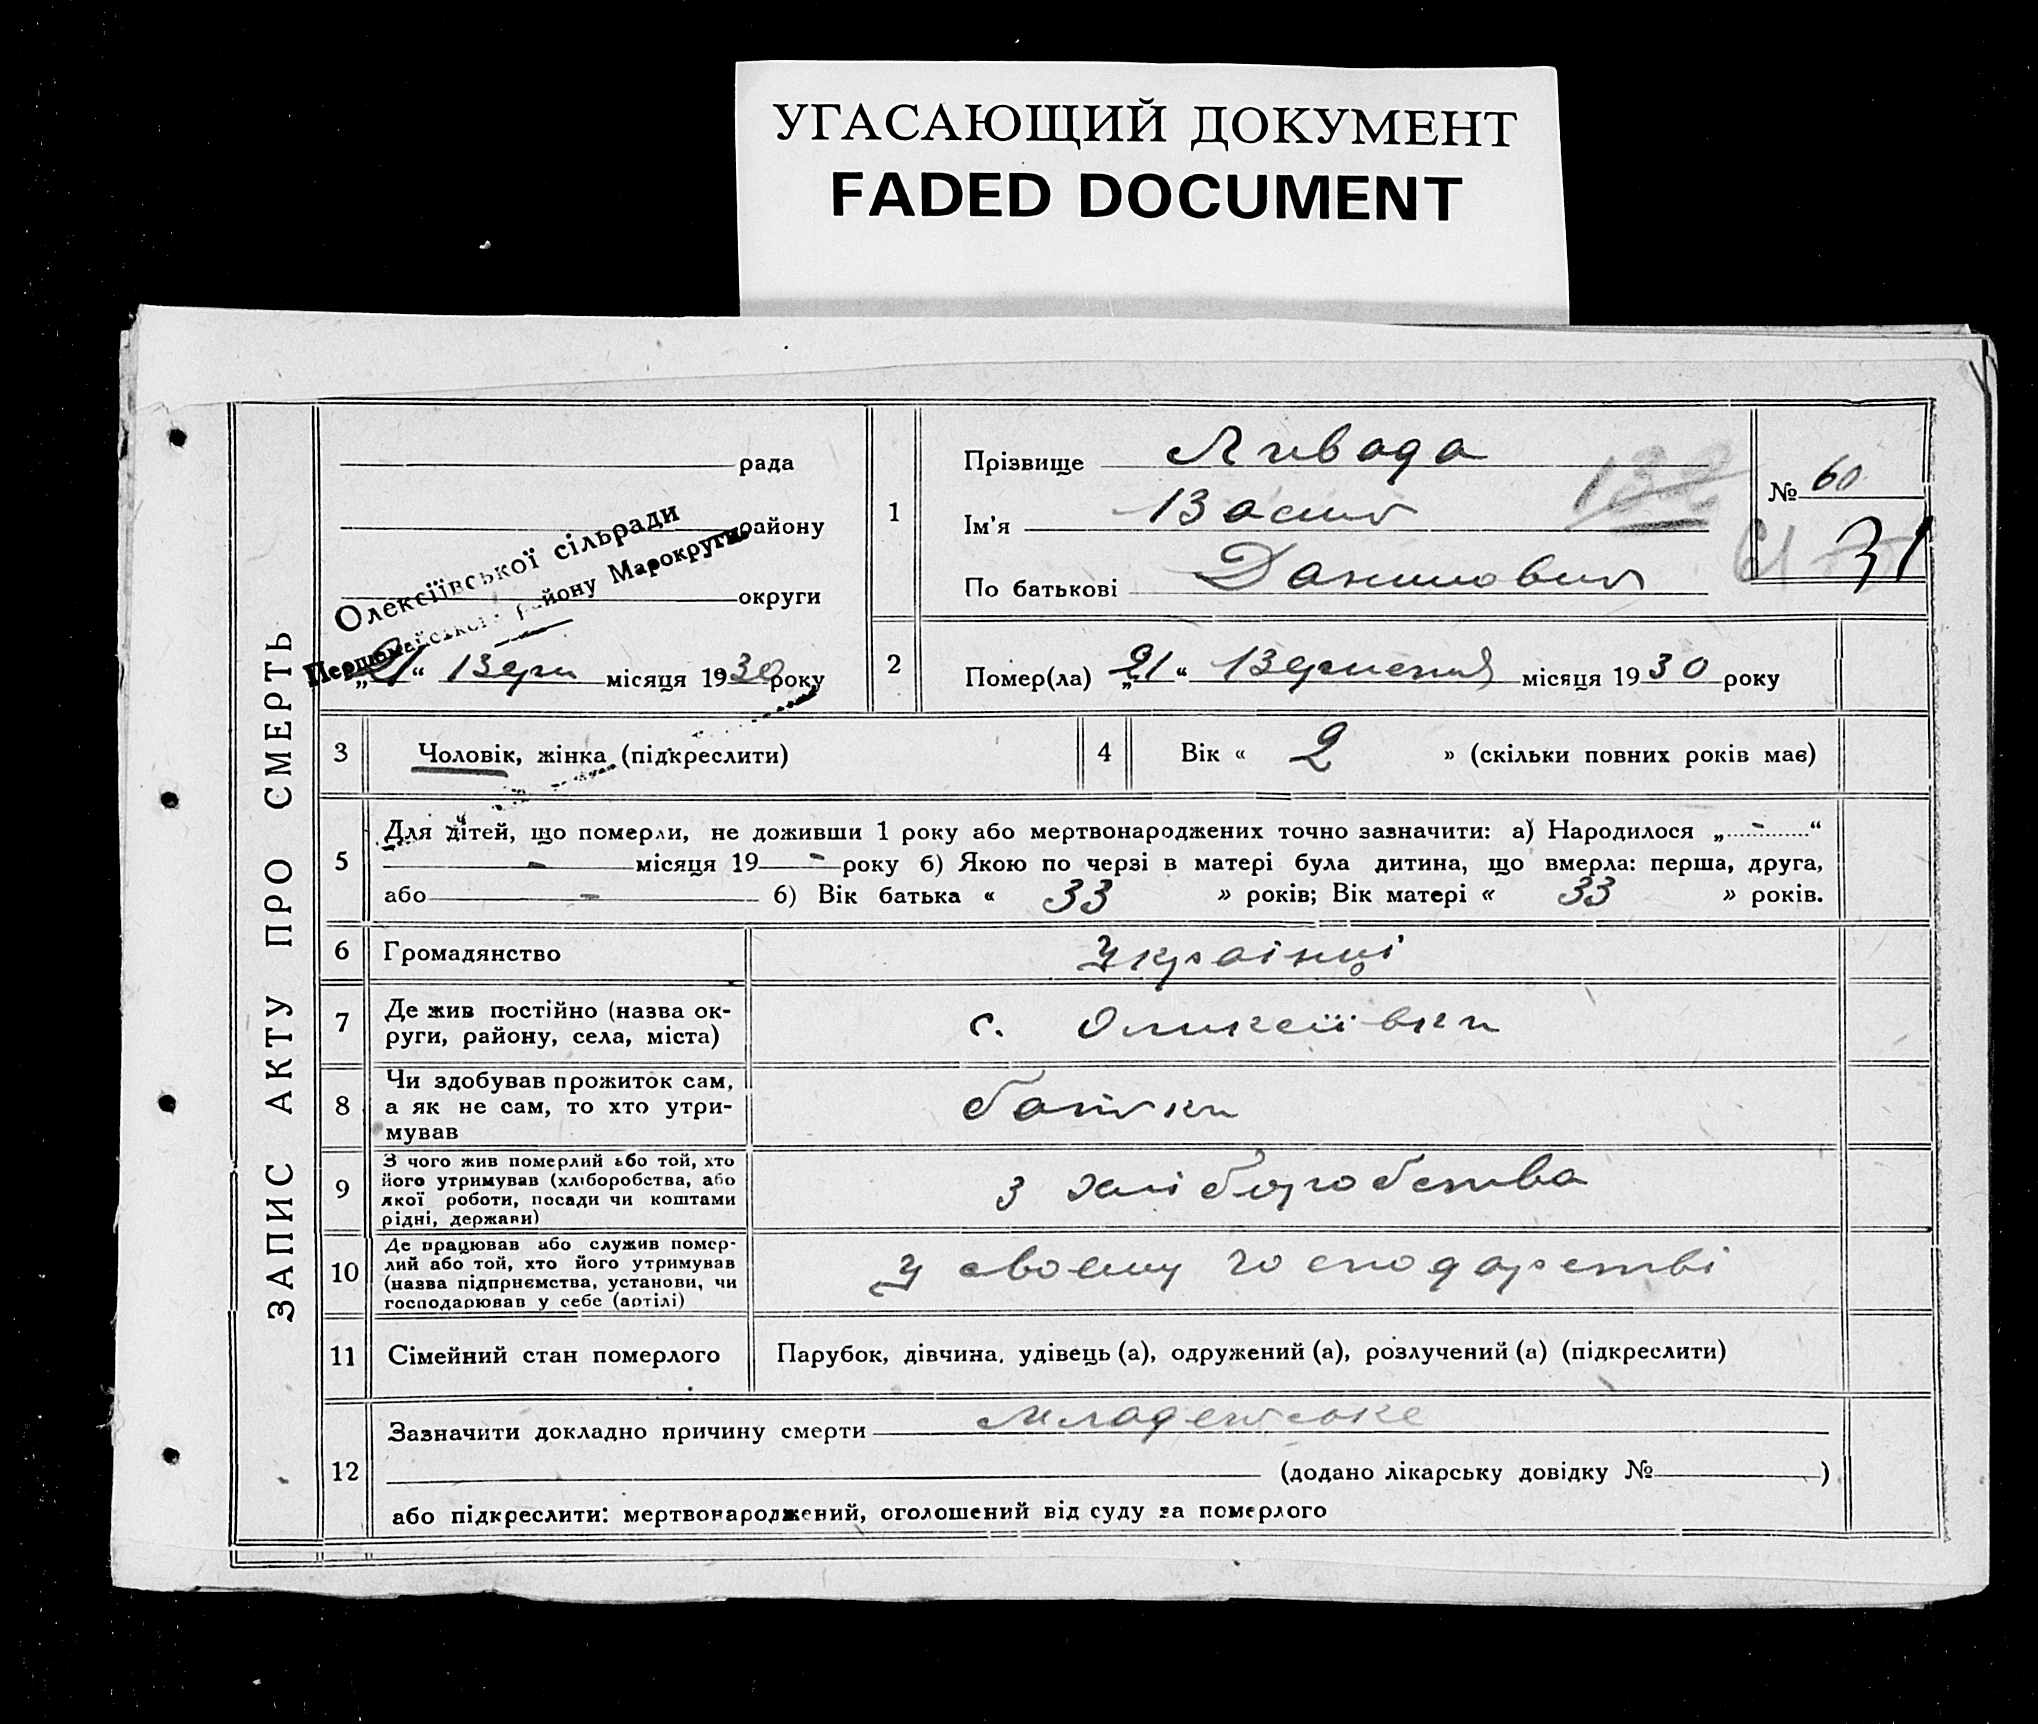 УГАСАЮЩИЙ ДОКУМЕНТ
FADED DOCUMENT
ЗАПИС АКТУ ПРО СМЕРТЬ
рада
району
округи
Олексіївської сільради
Першомайського району Марокруги
„21“ Верн місяця 1930 року
1
Прізвище Ливада
Ім'я Василь
По батькові Данилович
132
№ 60
61
31
2
Помер(ла) „21“ Вересня місяця 1930 року
3
Чоловік, жінка (підкреслити)
4
Вік « 2 » (скільки повних років має)
5
Для дітей, що померли, не доживши 1 року або мертвонароджених точно зазначити: а) Народилося „ - “
- місяця 19 - року б) Якою по черзі в матері була дитина, що вмерла: перша, друга,
або - б) Вік батька « 33 » років; Вік матері « 33 » років.
6
Громадянство
Українці
7
Де жив постійно (назва ок-
руги, району, села, міста)
с. Оликсіївки
8
Чи здобував прожиток сам,
а як не сам, то хто утри-
мував
батьки
9
З чого жив померлий або той, хто
його утримував (хліборобства, або
якої роботи, посади чи коштами
рідні, держави)
з хліборобства
10
Де працював або служив помер-
лий або той, хто його утримував
(назва підприємства, установи, чи
господарював у себе (артілі)
У своєму господарстві
11
Сімейний стан померлого
Парубок, дівчина, удівець (а), одружений (а), розлучений (а) (підкреслити)
12
Зазначити докладно причину смерти Младенське
(додано лікарську довідку № )
або підкреслити: мертвонароджений, оголошений від суду за померлого